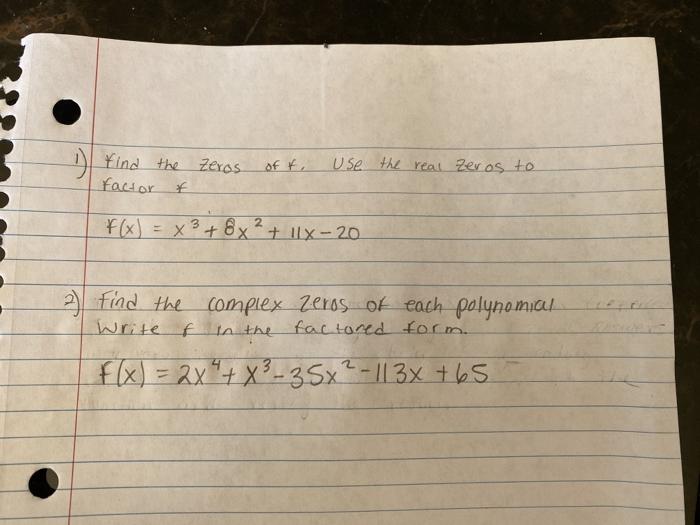 1) Find the zeros of f. Use the real zeros to
factor f
f(x) = x³ + 8x² + 11x - 20
2) Find the complex zeros of each polynomial
Write f in the factored form.
f(x) = 2x⁴ + x³ - 35x² - 113x + 65